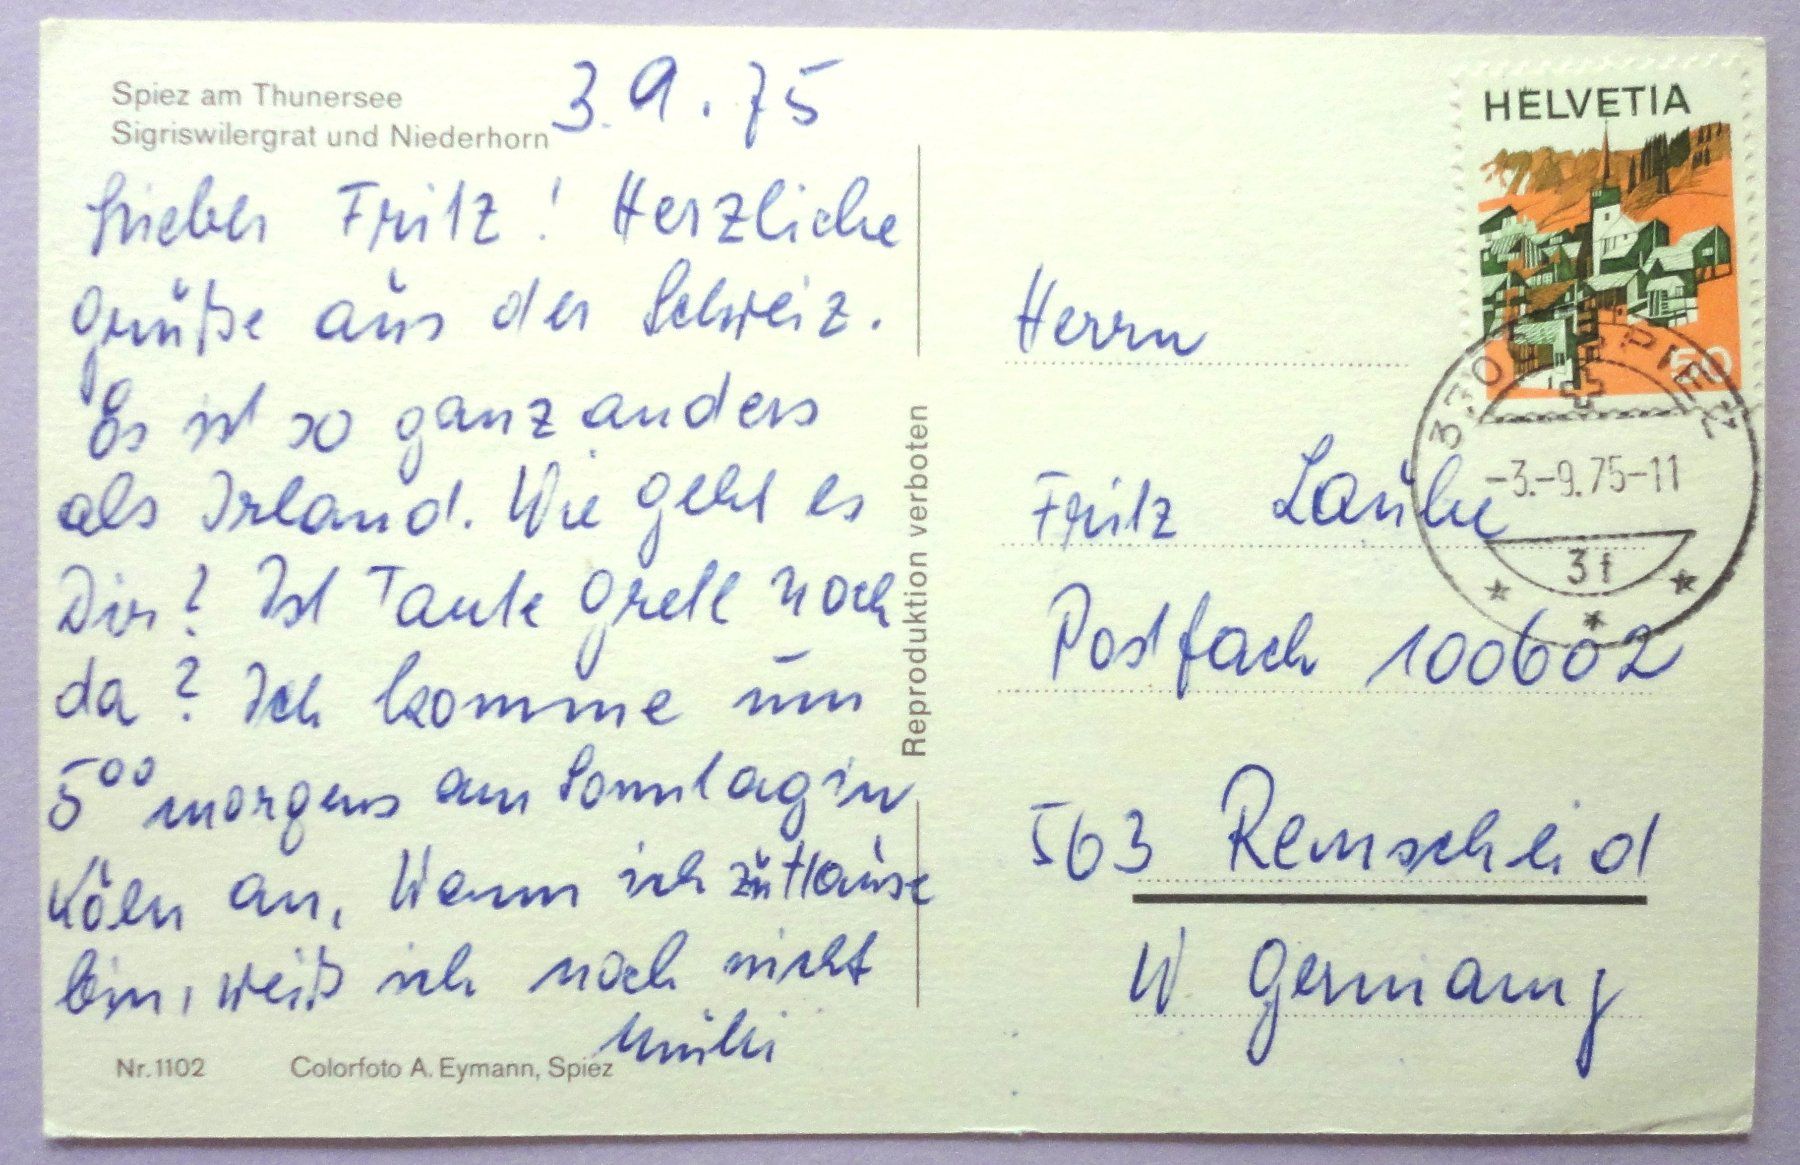 Spiez am Thunersee
Sigriswilergrat und Niederhorn
3.9.75
Lieber Fritz! Herzliche
Grüße aus der Schweiz.
Es ist so ganz anders
als Irland. Wie geht es
Dir? Ist Tante Grete noch
da? Ich komme um
5⁰⁰ morgens am Sonntag in
Köln an, Wann ich zu Hause
bin, weiß ich noch nicht
Nr. 1102
Colorfoto A. Eymann, Spiez
Reproduktion verboten
HELVETIA
50
3700 SPIEZ
-3.-9.75-11
Herrn
Fritz
Postfach 100602
563 Remscheid
W Germany